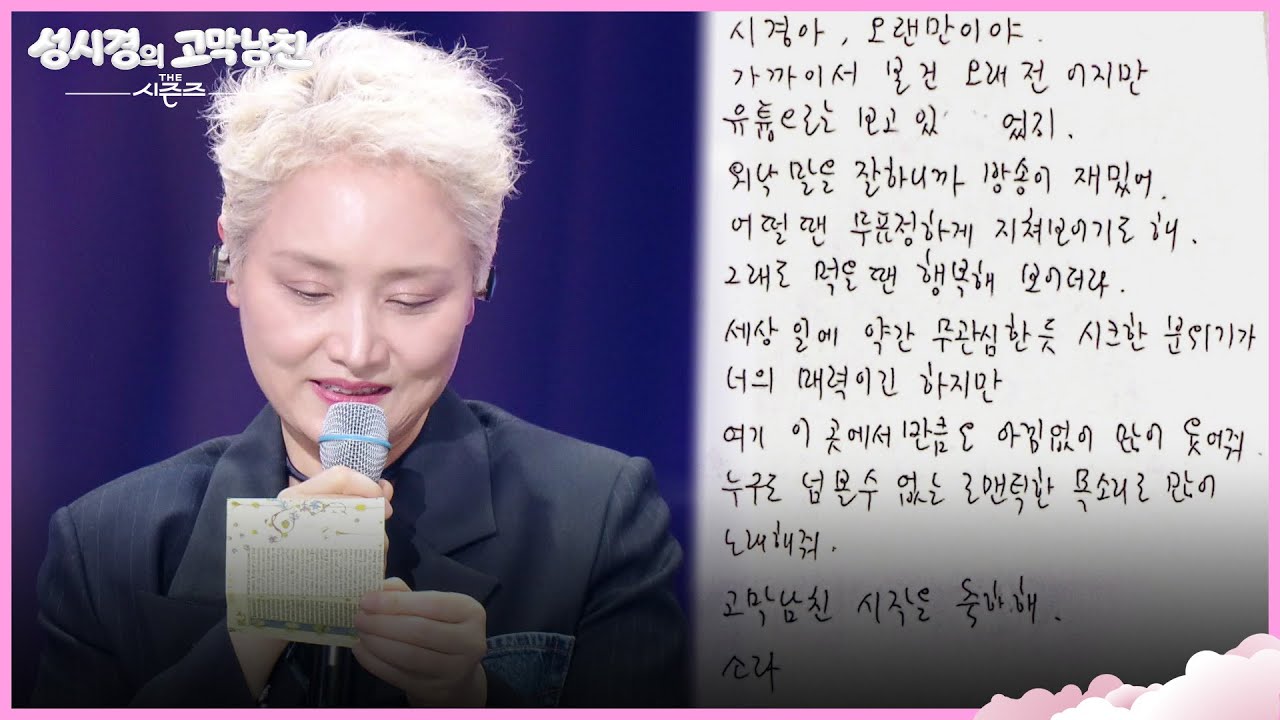 성시경의 고막남친
THE
시즌즈
시경아, 오랜만이야.
가까이서 본건 오래전 이지만
유튭으로는 보고 있 었지.
워낙 말을 잘하니까 방송이 재밌어.
어떨땐 무표정하게 지쳐보이기도 해.
그래도 먹을땐 행복해 보이더라.
세상 일에 약간 무관심한듯 시크한 분위기가
너의 매력이긴 하지만
여기 이 곳에서만큼은 아낌없이 많이 웃어줘.
누구도 넘볼수 없는 로맨틱한 목소리로 많이
노래해줘.
고막남친 시작을 축하해.
소라